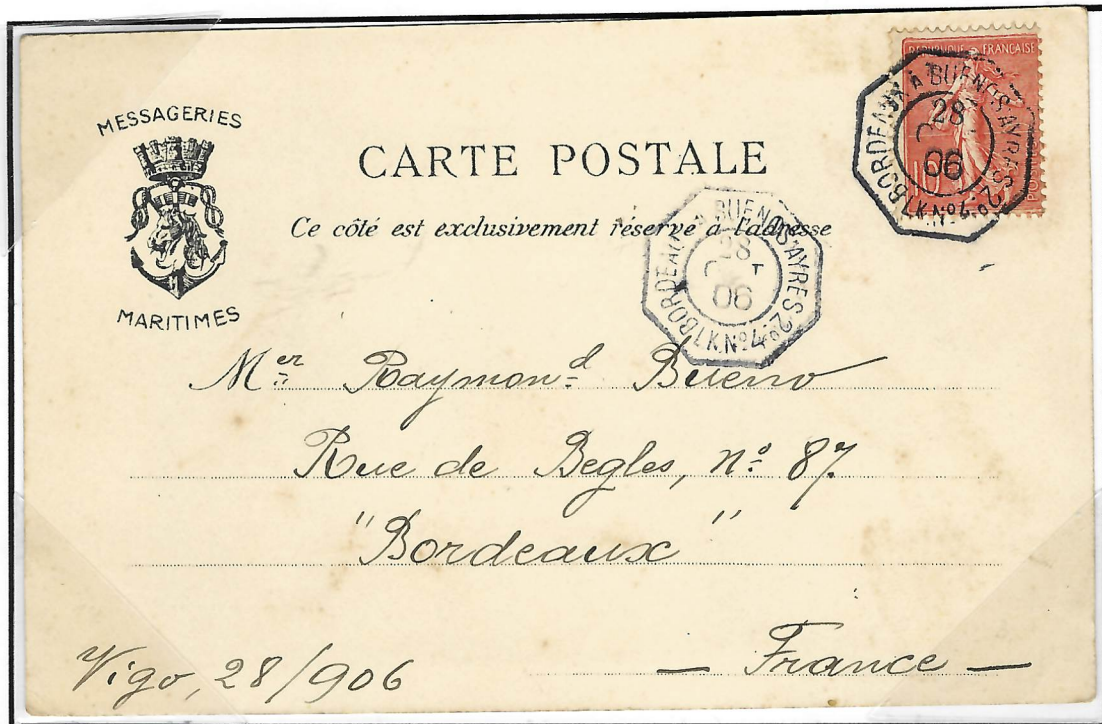 MESSAGERIES
MARITIMES
CARTE POSTALE
Ce côté est exclusivement réservé à l'adresse
REPUBLIQUE FRANÇAISE
10
BORDEAUX A BUENOS-AYRES 2º L.K.Nº4
28
06
BORDEAUX A BUENOS-AYRES 2º L.K.Nº4
28
OCT
06
Mer Raymond Bueno
Rue de Begles, nº 87.
"Bordeaux"
— France —
Vigo, 28/906